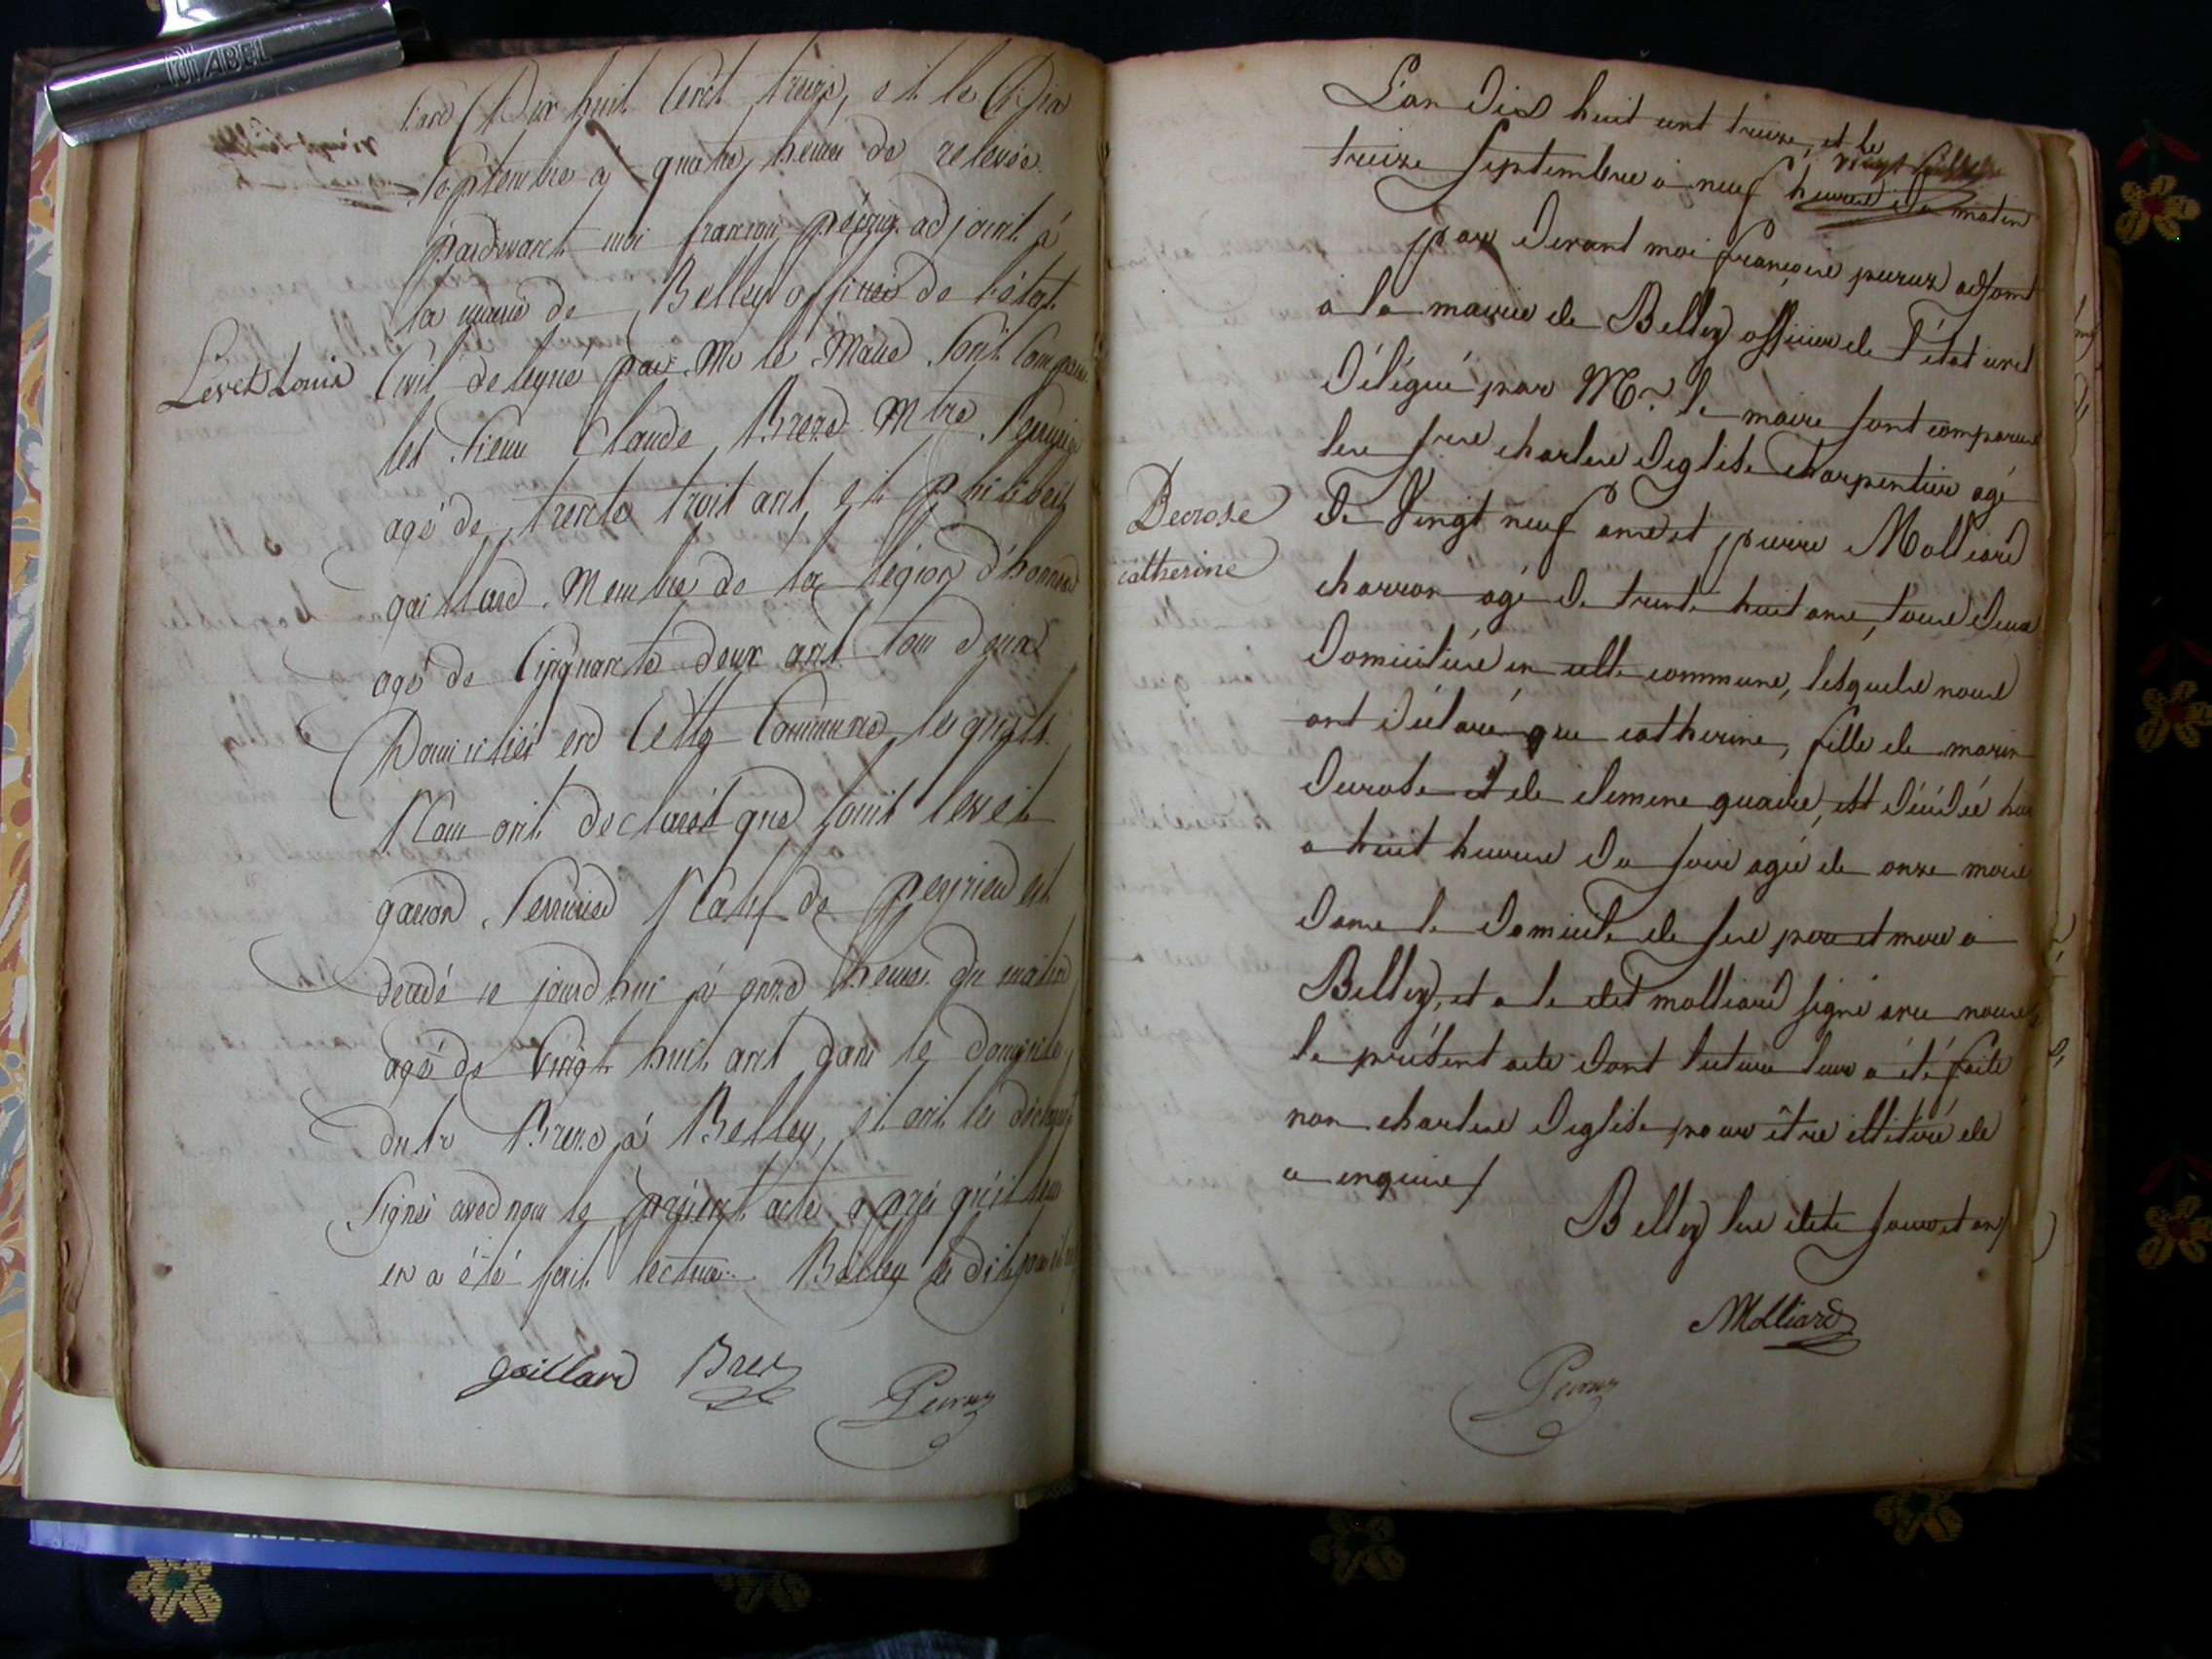 DIABEL
L'an Dix huit Cent treize, et le Dix
Septembre à quatre heures de relevée
pardevant moi françois péruz adjoint à
la mairie de Belley officier de l'état
Levet Louis
Civil delegué par Mr le Maire Sont Comparu
les Sieur Claude Brez Mtre Serrurier
agé de trente troit ant et philibert
gaillard Membre de la légion d'honneur
agé de Cinquante deux ant tou deux
Domiciliés en Cette Commune lesquels
Nou ont declaré que louis levet
garçon Serrurier Natif de peyrieu est
décédé ce jourd'hui à onze heures du matin
agé de Vingt huit ant dans le domicile
dudt Brez à Belley, et ont les déclarants
Signé avec nou le présent acte après qu'il leur
en a été fait lecture Belley les dits jour et an
gaillard Brez
Peruz
L'an Dix huit cent treize, et le
vingt
treize Septembre à neuf heures du matin
par devant moi françois peruz adjoint
a la mairie de Belley officier de l'état civil
Délégué par Mr. le maire sont comparus
les srs charles Deglise charpentier agé
Decrose
catherine
De Vingt neuf ans et pierre Molliard
charron agé De trente huit ans, tous Deux
Domiciliés en cette commune, lesquels nous
ont Déclaré que catherine, fille de marin
Decrose et de climene quaire, est Décédée hier
a huit heures Du soir agée de onze mois
Dans le Domicile de ses pere et mere a
Belley, et a le dit molliard signé avec nous
le présent acte Dont lecture leur a été faite
non charles Deglise pour être illitéré de
ce enquis /
Belley les dits jour et an /
Molliard
Peruz